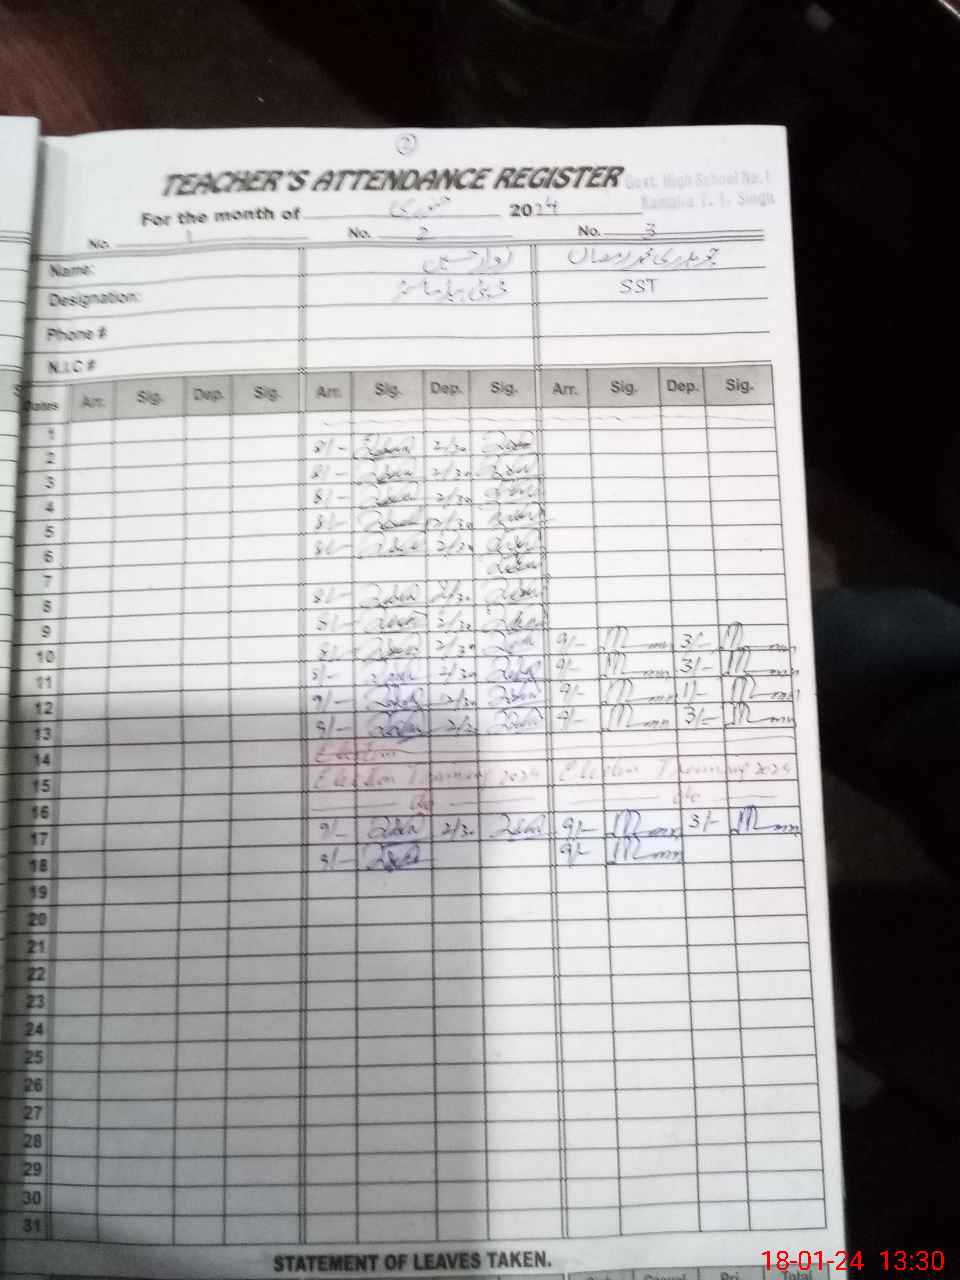 2
TEACHER'S ATTENDANCE REGISTER
Govt. High School No.1
Kamalia T. T. Singh
For the month of جنوری 2024
No. 1 No. 2 No. 3
Name: زوار حسین چوہدری محمد رمضان
Designation: ڈپٹی ہیڈ ماسٹر SST
Phone #
N.I.C #
Dates Arr. Sig. Dep. Sig. Arr. Sig. Dep. Sig. Arr. Sig. Dep. Sig.
1
2 8/- 2/30
3 8/- 2/30
4 8/- 2/30
5 8/- 2/30
6 8/- 2/30
7
8 8/- 2/30
9 8/- 2/30
10 8/- 2/30 9/- 3/-
11 8/- 2/30 9/- 3/-
12 9/- 12/30 9/- 1/-
13 9/- 2/30 9/- 3/-
14 Election
15 Election Training 2024 Election Training 2024
16 do do
17 9/- 2/30 9/- 3/-
18 9/- 9/-
19
20
21
22
23
24
25
26
27
28
29
30
31
STATEMENT OF LEAVES TAKEN.
Casual Pri. Total
18-01-24 13:30